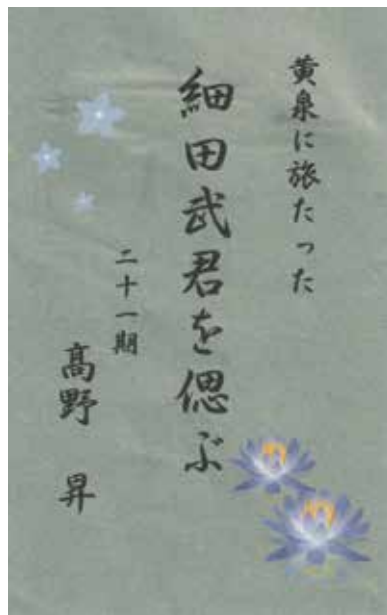 黄泉に旅たった
細田武君を偲ぶ
二十一期
髙野 昇